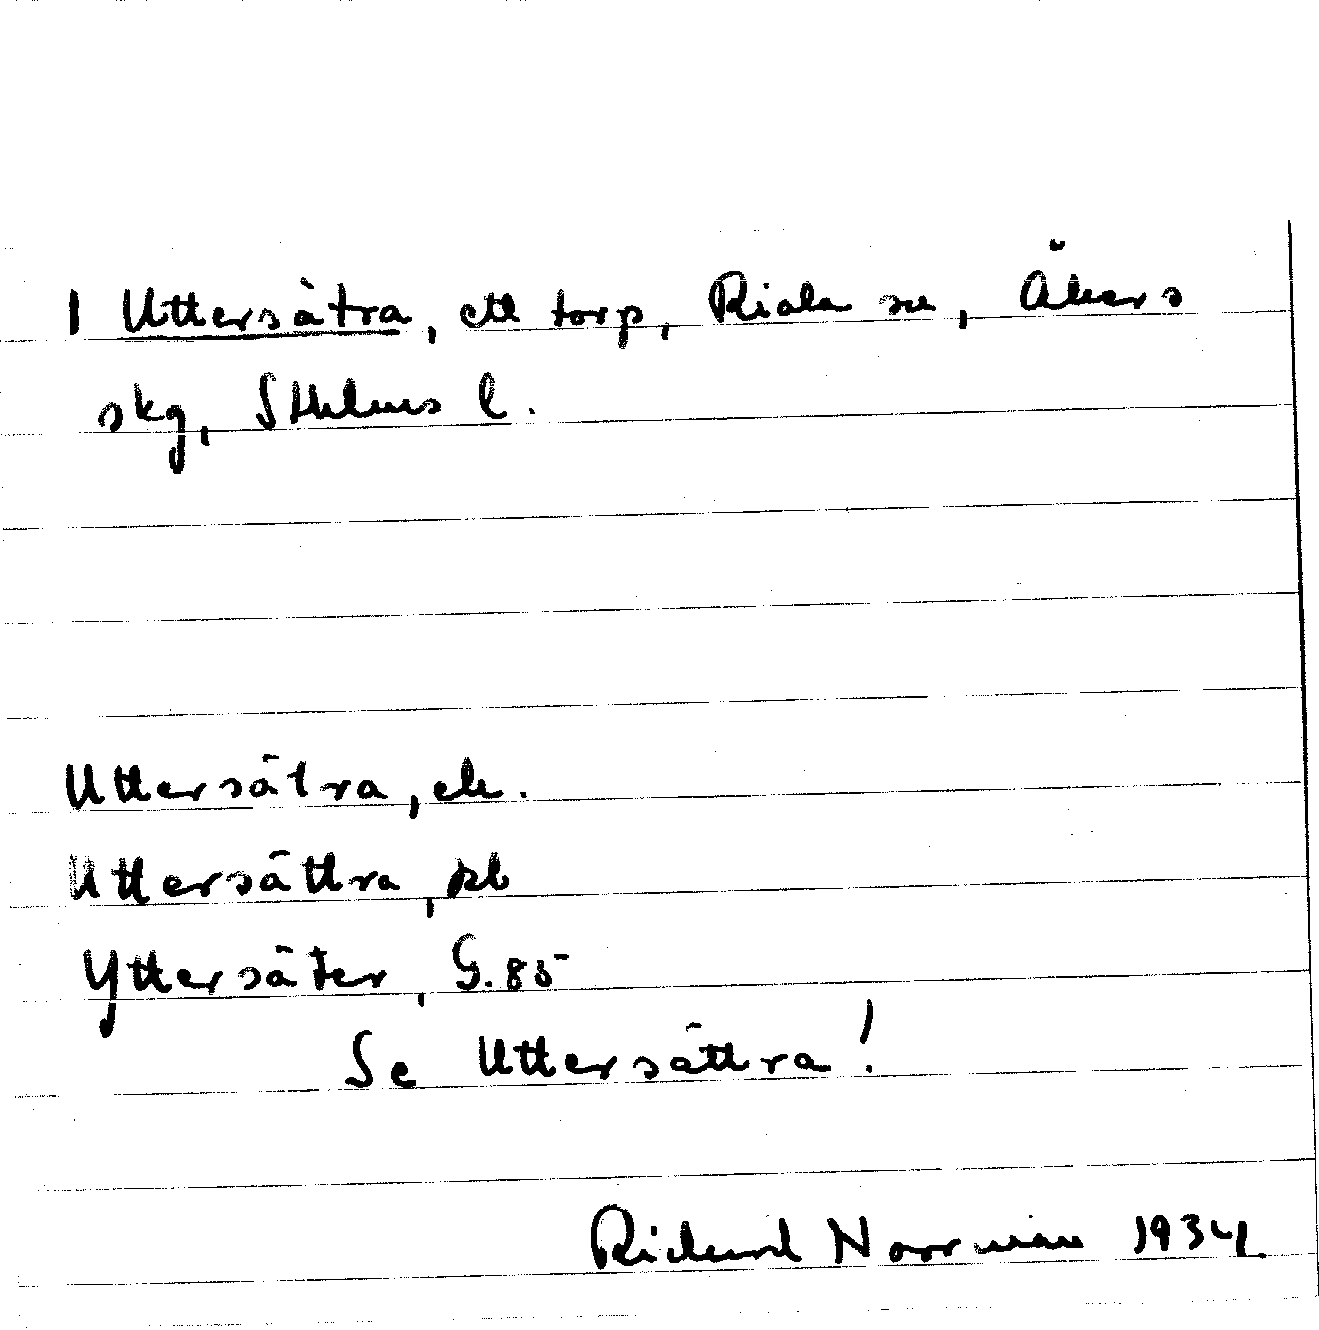 1 Uttersätra, ett torp, Riala sn, Åkers
skg, Sthlms l.
Uttersätra, ek.
Uttersättra, jb
Yttersäter, G. 85
Se Uttersättra!
Richard Norrman 1934